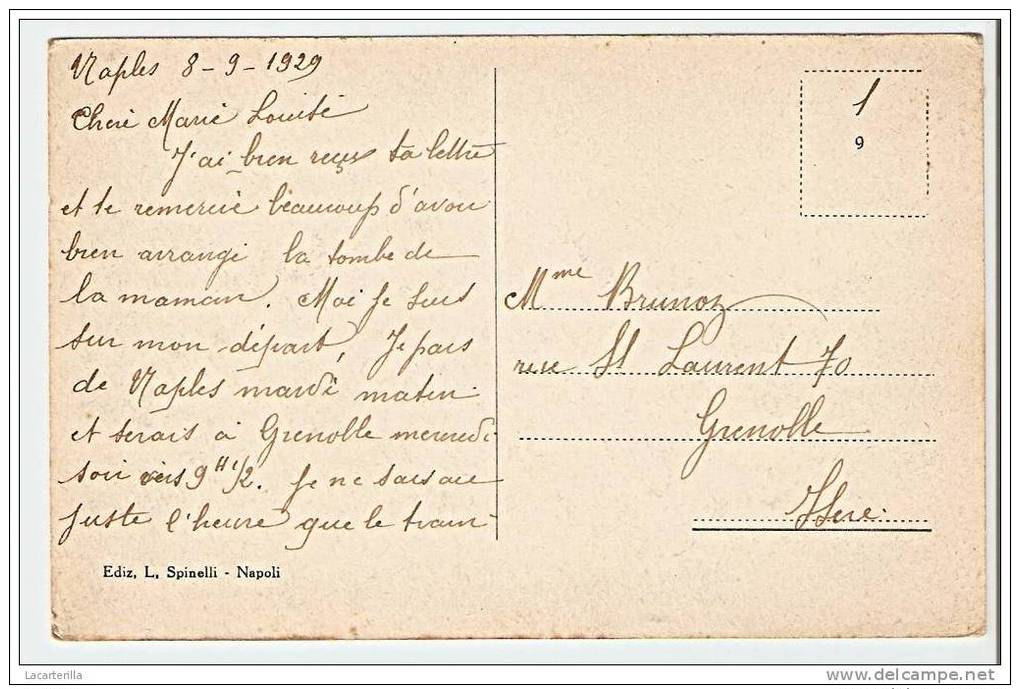 Naples 8-9-1929
Cheré Marie Louise
J'ai bien reçus ta lettre
et te remercie beaucoup d'avoir
bien arrangé la tombe de
la maman. Moi je suis
sur mon départ, Je pars
de Naples mardi matin
et serais à Grenoble mercredi
soir vers 9 H 1/2. Je ne sais au
juste l'heure que le train
Ediz, L, Spinelli - Napoli
1
9
Mme Brunoz
rue St Laurent 70
Grenoble
Isere.
Lacarterilla
www.delcampe.net